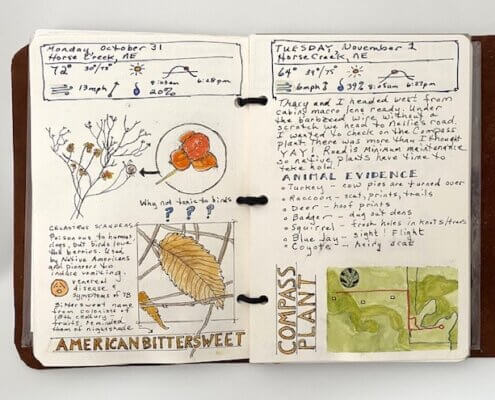 Monday, October 31
Horse Creek, NE
72° 30/75°
13mph
8:03am 6:28pm
20%
Why not toxic to birds
? ? ?
CELASTRUS SCANDENS
Poisonous to humans,
dogs, but birds love
the berries. Used
by Native Americans
and pioneers to
induce vomiting,
venereal
disease,
symptoms of TB
Bittersweet name
from colonists of
18th century -
fruits, reminded
them of nightshade
AMERICAN BITTERSWEET
TUESDAY, November 1
Horse Creek, NE
64° 39/75°
6mph
39%
8:05am 6:27pm
Thacy and I headed west from
cabin, macro lens ready. Under
the barbed wire without a
scratch we head to Nellie's road.
I wanted to check on the Compass
plant. There was more than I thought
YAY! Road is minimum maintenance
so native plants have time to
take hold.
ANIMAL EVIDENCE
Turkey - cow pies are turned over
Raccoon - scat, prints, trails
Deer - hoof prints
Badger - dug out dens
Squirrel - fresh holes in knots/trees
Blue Jay - sight! Flight
Coyote - hairy scat
COMPASS
PLANT